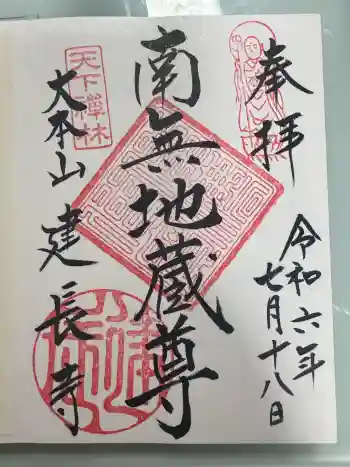 奉拝
令和六年
七月十八日
南無地蔵尊
天下禅林
大本山建長寺